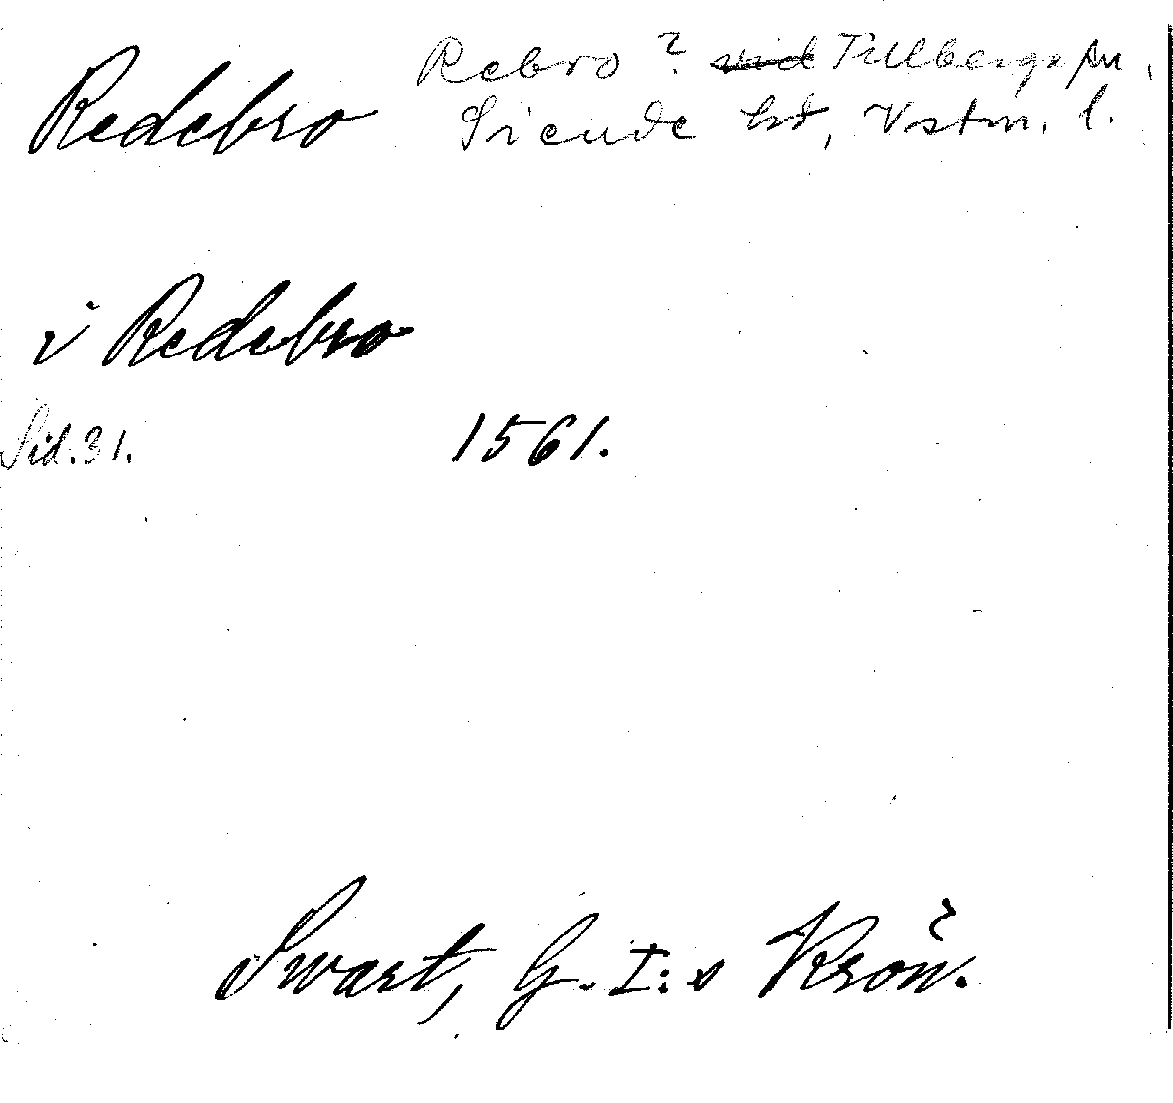 Redebro Rebro? vid Tillberga sn,
Siende hd, Vstm. l.
i Redebro
Sid. 31. 1561.
Swart, G. I:s Krön.